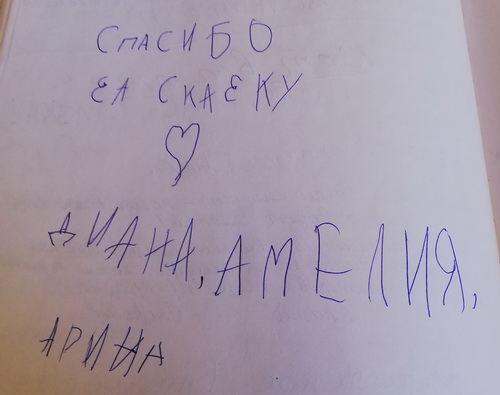 СПАСИБО
ЕА СКАЕКУ
ДИАНА, АМЕЛИЯ,
АРИНА